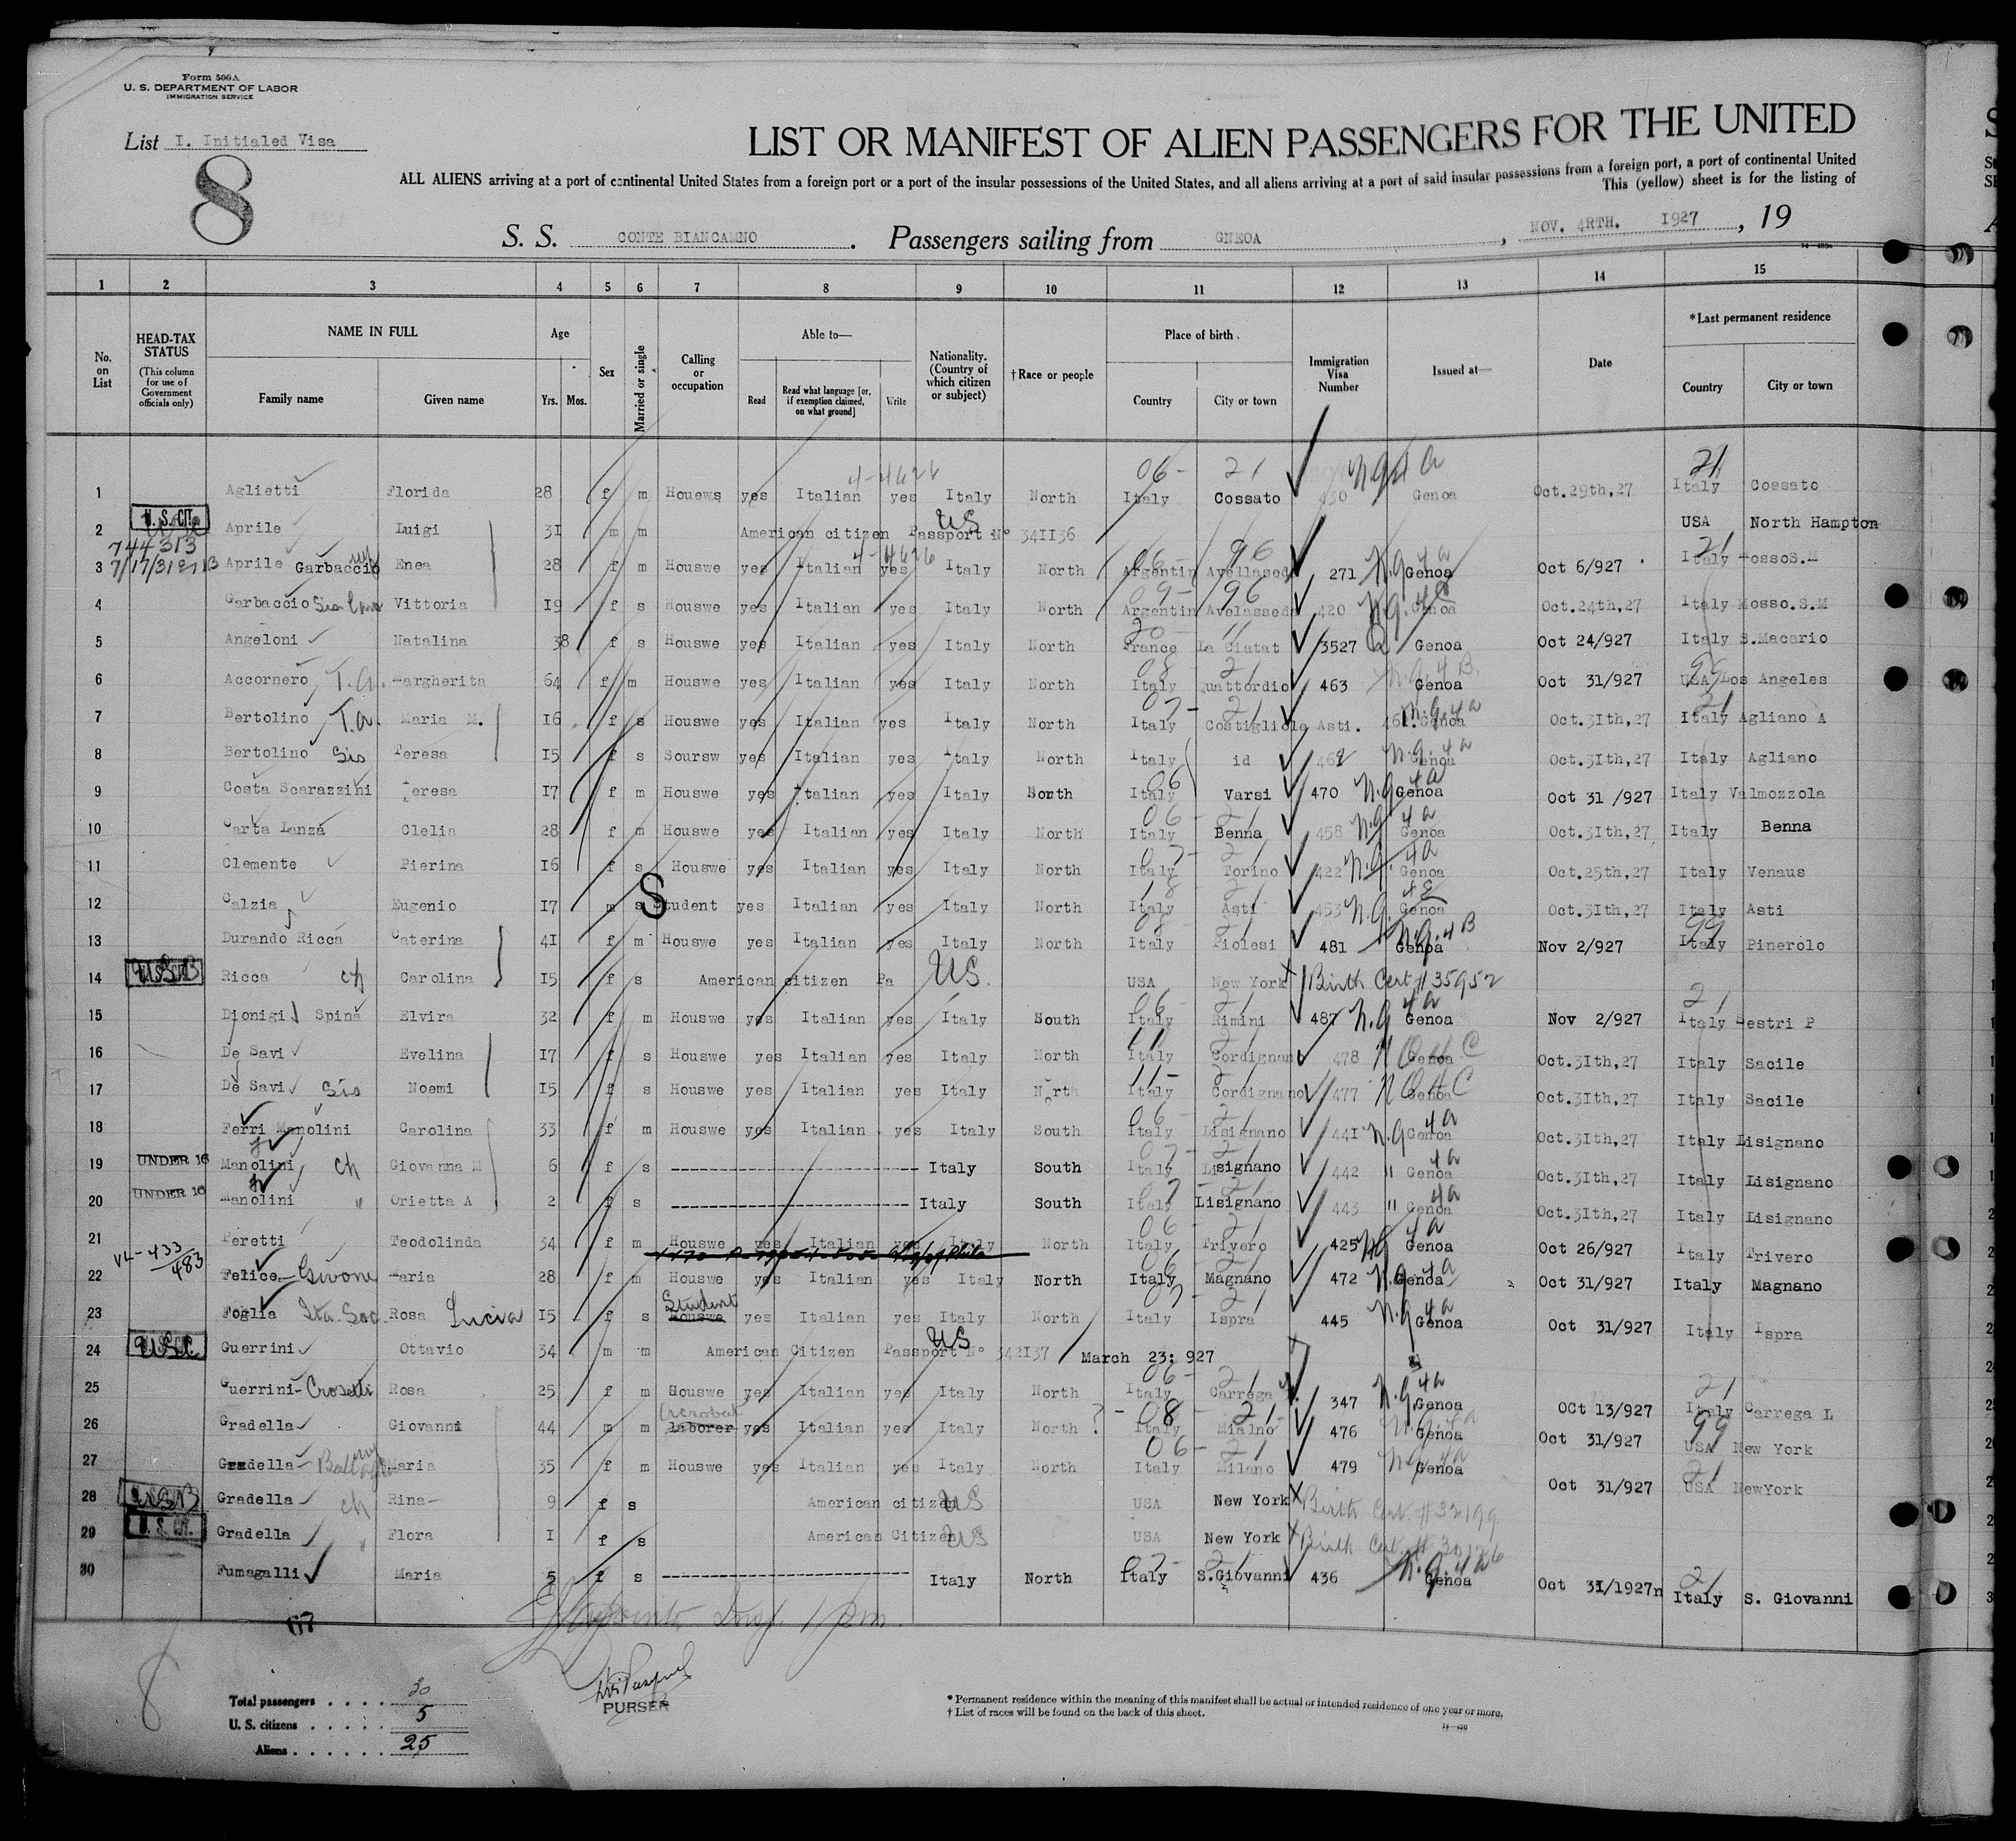 Form 500A
U. S. DEPARTMENT OF LABOR
IMMIGRATION SERVICE
List I. Initialed Visa
8
LIST OR MANIFEST OF ALIEN PASSENGERS FOR THE UNITED
ALL ALIENS arriving at a port of continental United States from a foreign port or a port of the insular possessions of the United States, and all aliens arriving at a port of said insular possessions from a foreign port, a port of continental United
This (yellow) sheet is for the listing of
S. S. CONTE BIANCAMNO . Passengers sailing from GNEOA , NOV. 4RTH. 1927 , 19
1 2 3 4 5 6 7 8 9 10 11 12 13 14 15
No. on List
HEAD-TAX STATUS (This column for use of Government officials only)
NAME IN FULL Family name Given name
Age Yrs. Mos.
Sex
Married or single
Calling or occupation
Able to— Read Read what language [or, if exemption claimed, on what ground] Write
Nationality. (Country of which citizen or subject)
†Race or people
Place of birth Country City or town
Immigration Visa Number
Issued at—
Date
*Last permanent residence Country City or town
4-4626 06- 21 21
1 Aglietti Florida 28 f m Houews yes Italian yes Italy North Italy Cossato 430 Genoa Oct.29th,27 Italy Cossato
2 U. S. CIT. Aprile Luigi 31 m m American citizen Passport N° 3411136 US USA North Hampton
744313
3 Aprile Garbaccio Enea 28 f m Houswe yes Italian yes Italy North Argentin Avellased 271 N.g 4a Genoa Oct 6/927 Italy MossoS.M
4 Garbaccio Sis Vittoria 19 f s Houswe yes Italian yes Italy North Argentin Avelassed 420 Genoa Oct.24th,27 Italy Mosso.S.M
5 Angeloni Natalina 38 f s Houswe yes Italian yes Italy North France La Ciatat 3527 Genoa Oct 24/927 Italy S.Macario
6 Accornero T.a. Margherita 64 f m Houswe yes Italian yes Italy North Italy Quattordio 463 Genoa Oct 31/927 USA Los Angeles
7 Bertolino T.a. Maria M. 16 f s Houswe yes Italian yes Italy North Italy Costigliole Asti. 461 Genoa Oct.31th,27 Italy Agliano A
8 Bertolino Sis Teresa 15 f s Soursw yes Italian yes Italy North Italy id 462 Genoa Oct.31th,27 Italy Agliano
9 Costa Scarazzini Teresa 17 f m Houswe yes Italian yes Italy North Italy Varsi 470 N.g 4a Genoa Oct 31 /927 Italy Valmozzola
10 Carta Lanza Clelia 28 f m Houswe yes Italian yes Italy North Italy Benna 458 N.g 4a Genoa Oct.31th,27 Italy Benna
11 Clemente Pierina 16 f s Houswe yes Italian yes Italy North Italy Torino 422 N.g. 4a Genoa Oct.25th,27 Italy Venaus
12 Calzia Eugenio 17 m s Student yes Italian yes Italy North Italy Asti 453 N.g. Genoa Oct.31th,27 Italy Asti
13 Durando Ricca Caterina 41 f m Houswe yes Italian yes Italy North Italy Piolesi 481 N.g. 4B Genoa Nov 2/927 Italy Pinerolo
14 USB Ricca ch Carolina 15 f s American citizen Pa US. USA New York x Birth Cert # 35952
15 Dionigi Spina Elvira 32 f m Houswe yes Italian yes Italy South Italy Rimini 487 N.g 4a Genoa Nov 2/927 Italy Sestri P
16 De Savi Evelina 17 f s Houswe yes Italian yes Italy North Italy Cordignan 478 Genoa Oct.31th,27 Italy Sacile
17 De Savi Sis Noemi 15 f s Houswe yes Italian yes Italy North Italy Cordignano 477 Genoa Oct.31th,27 Italy Sacile
18 Ferri Manolini Carolina 33 f m Houswe yes Italian yes Italy South Italy Lisignano 441 N.g 4a Genoa Oct.31th,27 Italy Lisignano
19 UNDER 16 Manolini ch Giovanna M 6 f s Italy South Italy Lisignano 442 " 4a Genoa Oct.31th,27 Italy Lisignano
20 UNDER 16 Manolini " Orietta A 2 f s Italy South Italy Lisignano 443 " 4a Genoa Oct.31th,27 Italy Lisignano
21 Peretti Teodolinda 34 f m Houswe yes Italian yes Italy North Italy Trivero 425 Ng 4a Genoa Oct 26/927 Italy Trivero
VL-433/483
22 Felice Givone Maria 28 f m Houswe yes Italian yes Italy North Italy Magnano 472 N.g 4a Genoa Oct 31/927 Italy Magnano
23 Foglia Rosa Lucia 15 f s Student Houswe yes Italian yes Italy North Italy Ispra 445 N.g 4a Genoa Oct 31/927 Italy Ispra
24 USC Guerrini Ottavio 34 m m American Citizen Passport N° 342137 US March 23: 927
25 Guerrini-Crosetti Rosa 25 f m Houswe yes Italian yes Italy North Italy Carrega 347 N.g. 4a Genoa Oct 13/927 Italy Carrega L
26 Gradella Giovanni 44 m m Acrobat laborer yes Italian yes Italy North ? Italy Mialno 476 Genoa Oct 31/927 USA New York
27 Gradella Maria 35 f m Houswe yes Italian yes Italy North Italy Milano 479 Genoa Oct 31/927 USA NewYork
28 USB Gradella ch Rina 9 f s American citizen US USA New York x Birth Cert. # 32199
29 U. S. CIT. Gradella " Flora 1 f s American Citizen US USA New York x Birth Cert. #
30 Fumagalli Maria 5 f s Italy North Italy S.Giovanni 436 N.g. 4a Genoa Oct 31/1927 Italy S. Giovanni
8
Total passengers . . . . 30
U. S. citizens . . . . . 5
Aliens . . . . . . 25
PURSER
* Permanent residence within the meaning of this manifest shall be actual or intended residence of one year or more.
† List of races will be found on the back of this sheet.